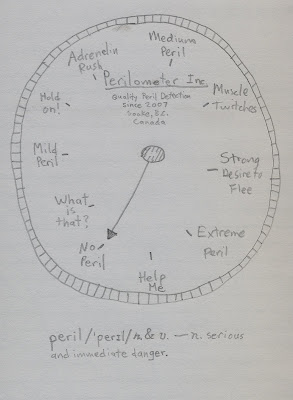 Medium
Peril
Adrenelin
Rush
Perilometer Inc.
Quality Peril Detection
since 2007
Sooke, B.C.
Canada
Muscle
Twitches
Hold
on!
Mild
Peril
Strong
Desire to
Flee
What
is
that?
No
Peril
Extreme
Peril
Help
Me
peril/'perɪl/n. & v. — n. serious
and immediate danger.